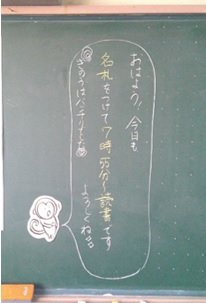 おはよう！今日も
名札をつけて7時55分～読書です
よろしくね。
きのうはバッチリでした